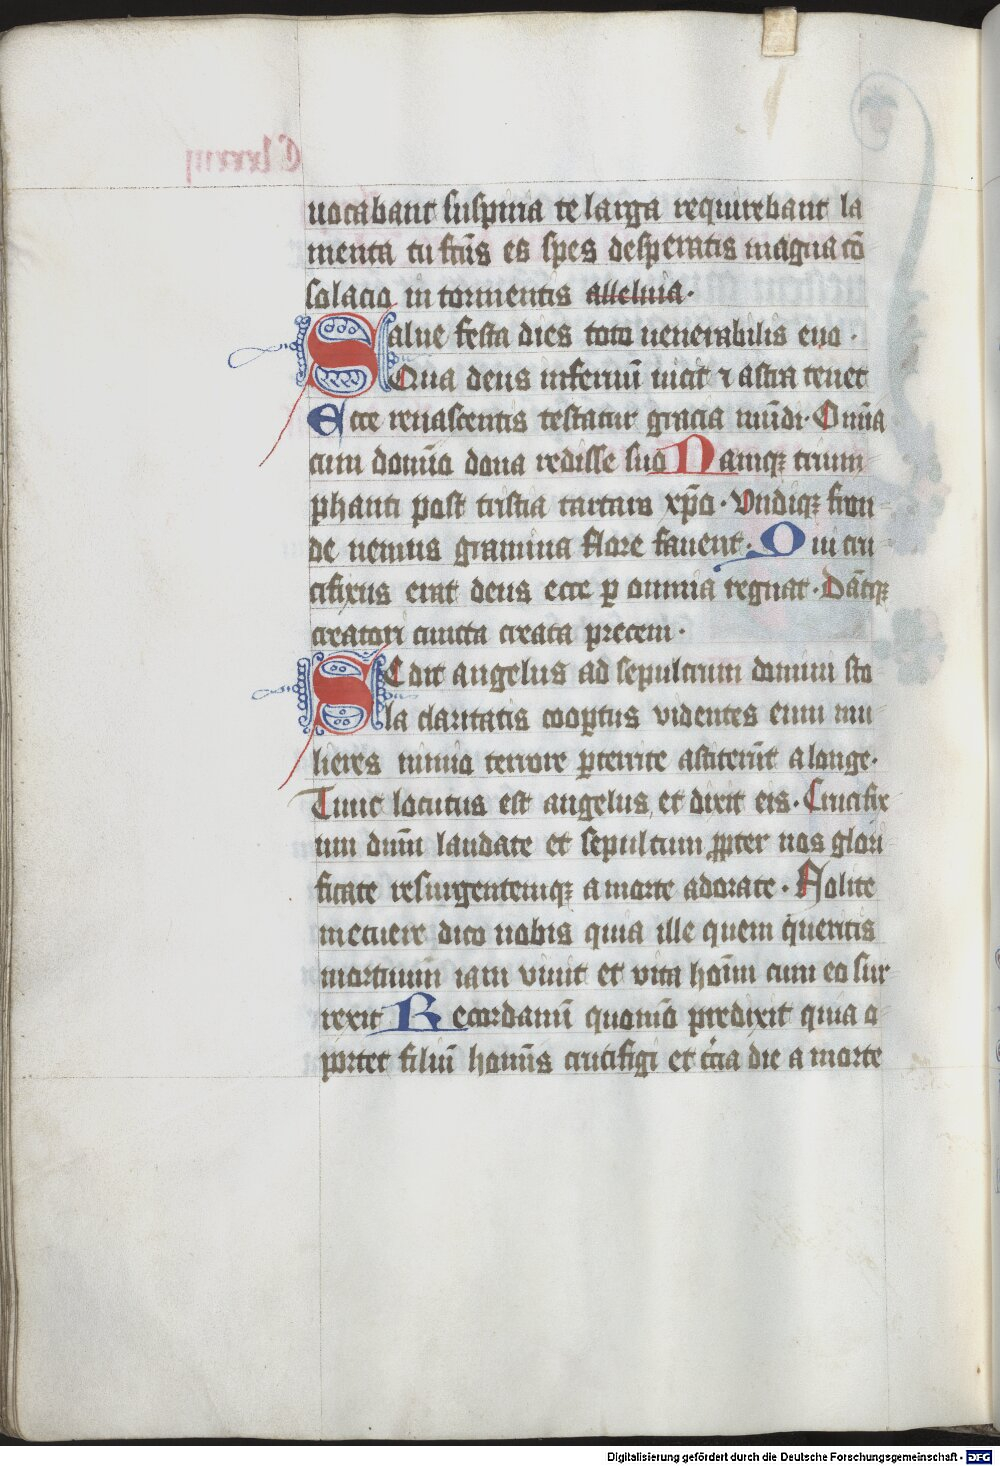 uocabant suspiria te larga requirebant la
menta tu fcūs es spes desperatis magna cō
solacio in tormentis alleluia.
Salue festa dies toto uenerabilis euo.
Qua deus infernū uicit ⁊ astra tenet
Ecce renascentis testatur gracia mūdi. Omīa
cum domīo dona redisse suo Namqꝫ trium
phanti post tristia tartara xp̄o. Vndiqꝫ fron
de nemus gramina flore fauent. Qui cru
cifixus erat deus ecce ꝑ omnia regnat. Dātqꝫ
creatori cuncta creata precem.
SEdit angelus ad sepulcrum domini sto
la claritatis cooꝑtus videntes eum mu
lieres nimio terrore ꝑterrite astiterūt a longe.
Tunc locutus est angelus et dixit eis. Crucifix
um dn̄m laudate et sepultum ꝓpter uos glori
ficate resurgentemqꝫ a morte adorate. Nolite
metuere dico uobis quia ille quem q̄ueritis
mortuum iam viuit et vita hoīm cum eo sur
rexit Recordamī quomō predixit quia o
portet filiū homīs crucifigi et tcīa die a morte
Digitalisierung gefördert durch die Deutsche Forschungsgemeinschaft - DFG